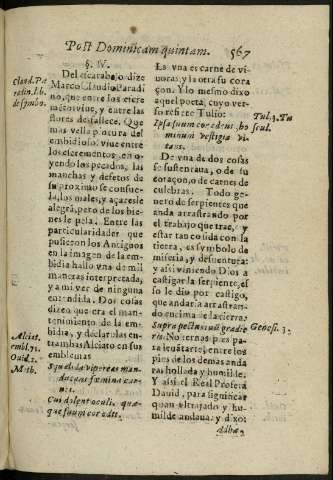 Post Dominicam quintam. 567
§. IV.
Del escarabajo dize
Marco Claudio Paradi
no, que entre los excre
mentos viue, y entre las
flores desfallece. Que
mas vella pintura del
embidioso: viue entre
los excrementos en o-
yendo los pecados, las
manchas y defetos de
su proximo se consue-
la, los males, y açares le
alegrã, pero de los bie-
nes le pesa. Entre las
particularidades que
pusieron los Antiguos
en la imagen de la em-
bidia hallo vna de mil
maneras interpretada,
y a mi ver de ninguna
entendida. Dos cosas
dizen que era el man-
tenimiento de la em-
bidia, y declaralas en-
trambas Alciato en sus
emblemas
Squalida vipereas man-
ducans fœmina car-
nes.
Cui dolent oculi, quæ-
que suum cor edit.
Claud. Pa
radin. lib.
de symbo.
Alciat.
embl. 71.
Ouid. 2.
Met.
La vna es carne de vi-
uoras, y la otra su cora
çon. Y lo mesmo dixo
aquel poeta, cuyo ver-
so refiere Tulio:
Ipse suum cor edens, ho
minum vestigia vi-
tans.
De vna de dos cosas
se sustentaua, o de su
coraçon, o de carnes de
culebras. Todo gene-
ro de serpientes que
anda arrastrando por
el trabajo que trae, y
estar tan cosida con la
tierra, es symbolo de
miseria, y desuentura:
y assi viniendo Dios a
castigar la serpiente, es
so le dio por castigo,
que andaria arrastran-
do encima de la tierra:
Supra pectus tuũ gradie
ris. No ternas pies pa-
ra leuãtarte, entre los
pies de los demas anda
ras hollada y humilde.
Y assi el Real Profeta
Dauid, para significar
quan vltrajado y hu-
milde andaua, y dixo:
Tul. 3. Tu
scul.
Genesi. 3.